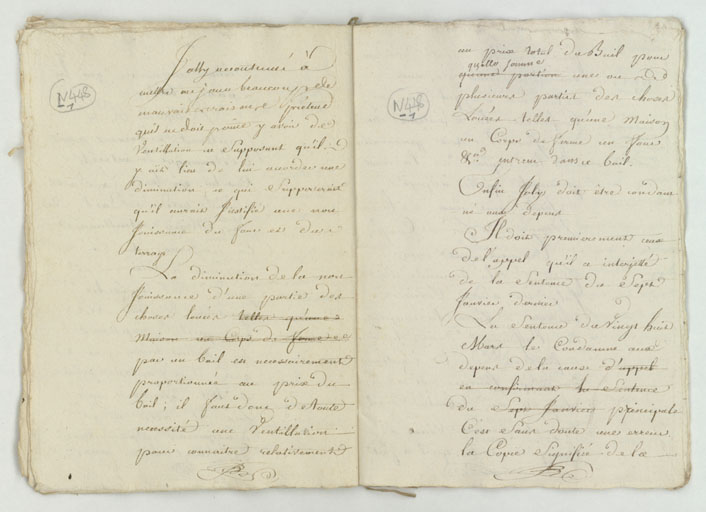 N 448
1
Jolly accoutumé à
mettre au jour beaucoup de
mauvais raisons prétend
qu'il ne doit point y avoir de
Ventillation en Supposant qu'il
y ait lieu de lui accorder une
diminution ce qui Supposerait
qu'il aurait Justifié une non
Jouissance du four et du
terrap
La diminution de la non
Jouissance d'une partie des
choses louées telles qu'une
Maison un Corps de ferme &c
par un bail est necessairement
proportionnée au prix du
bail; il faut donc de toute
necessité une Ventillation
pour connaitre relativement
N 448
1
au prix total du Bail pour
quelle somme
quelle portion une ou
plusieurs parties des choses
Louées telles qu'une Maison
un Corps de ferme un four
&ca entrent dans ce bail.
Enfin Joly doit être condam
né aux depens
Il doit premierement ceux
de l'appel qu'il a interjetté
de la Sentence du Sept
Janvier dernier
La Sentence du Vingt huit
Mars le Condamne aux
depens de la cause d'appel
en confirmant la Sentence
du Sept Janvier principale
C'est Sans doute une erreur
la Copie Signifiée de la